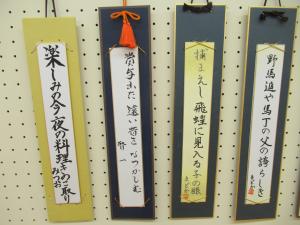 野馬追や馬丁の父の誇らしき
捕まえし飛蝗に見入る子の眼
まどか
賞与出た遠い昔をなつかしむ
賢一
楽しみの今夜の料理きのこ取り
みつお